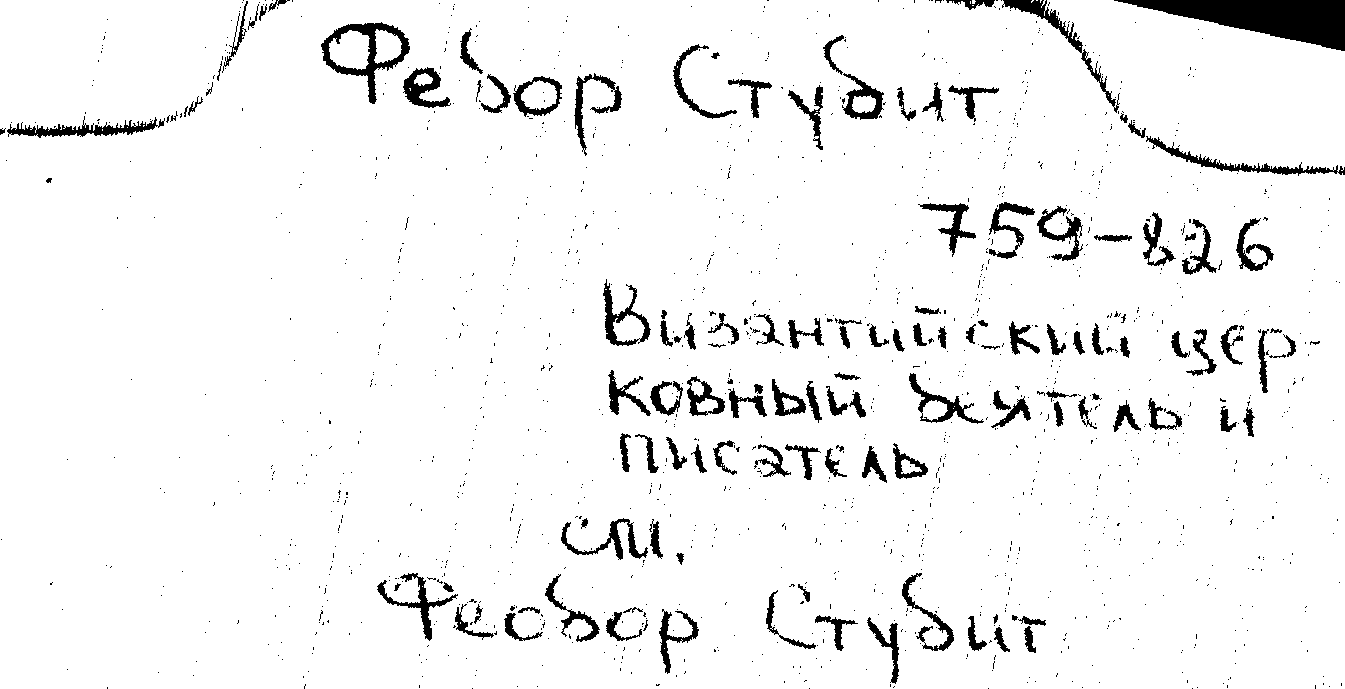 Федор Студит
759-826
Византийский цер-
ковный деятель и
писатель
см.
Феодор Студит